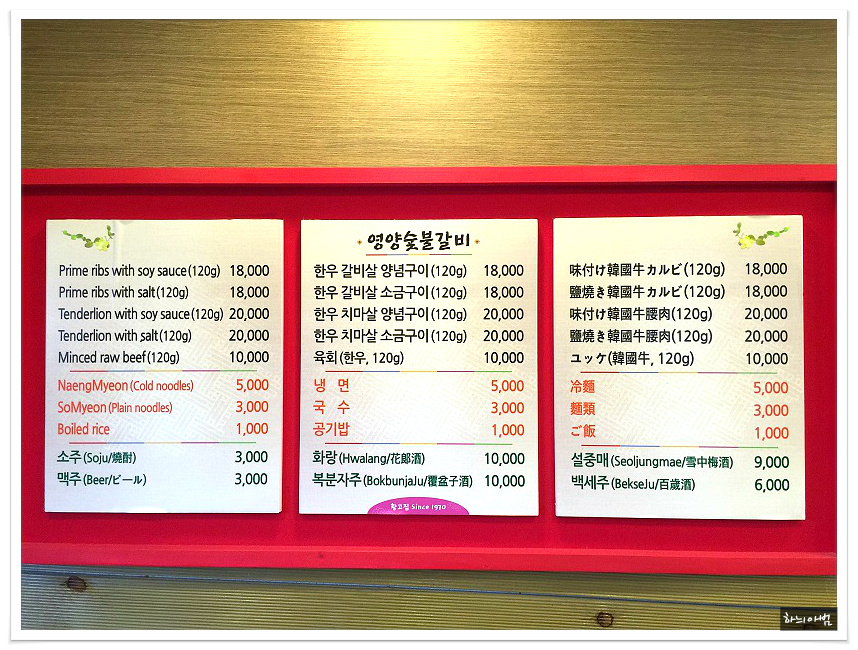 Prime ribs with soy sauce (120g) 18,000
Prime ribs with salt (120g) 18,000
Tenderlion with soy sauce (120g) 20,000
Tenderlion with salt (120g) 20,000
Minced raw beef (120g) 10,000
NaengMyeon (Cold noodles) 5,000
SoMyeon (Plain noodles) 3,000
Boiled rice 1,000
소주 (Soju/燒酎) 3,000
맥주 (Beer/ビール) 3,000
영양숯불갈비
한우 갈비살 양념구이 (120g) 18,000
한우 갈비살 소금구이 (120g) 18,000
한우 치마살 양념구이 (120g) 20,000
한우 치마살 소금구이 (120g) 20,000
육회 (한우, 120g) 10,000
냉 면 5,000
국 수 3,000
공기밥 1,000
화랑 (Hwalang/花郞酒) 10,000
복분자주 (BokbunjaJu/覆盆子酒) 10,000
황고집 Since 1970
味付け韓國牛カルビ (120g) 18,000
鹽燒き韓國牛カルビ (120g) 18,000
味付け韓國牛腰肉 (120g) 20,000
鹽燒き韓國牛腰肉 (120g) 20,000
ユッケ (韓國牛, 120g) 10,000
冷麵 5,000
麵類 3,000
ご飯 1,000
설중매 (Seoljungmae/雪中梅酒) 9,000
백세주 (BekseJu/百歲酒) 6,000
하늬아범